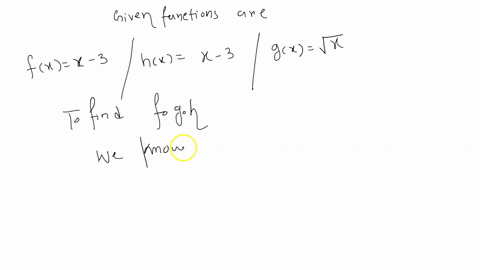 Given functions are
f(x) = x - 3 / h(x) = x - 3 / g(x) = √x
To find fogoh
We know